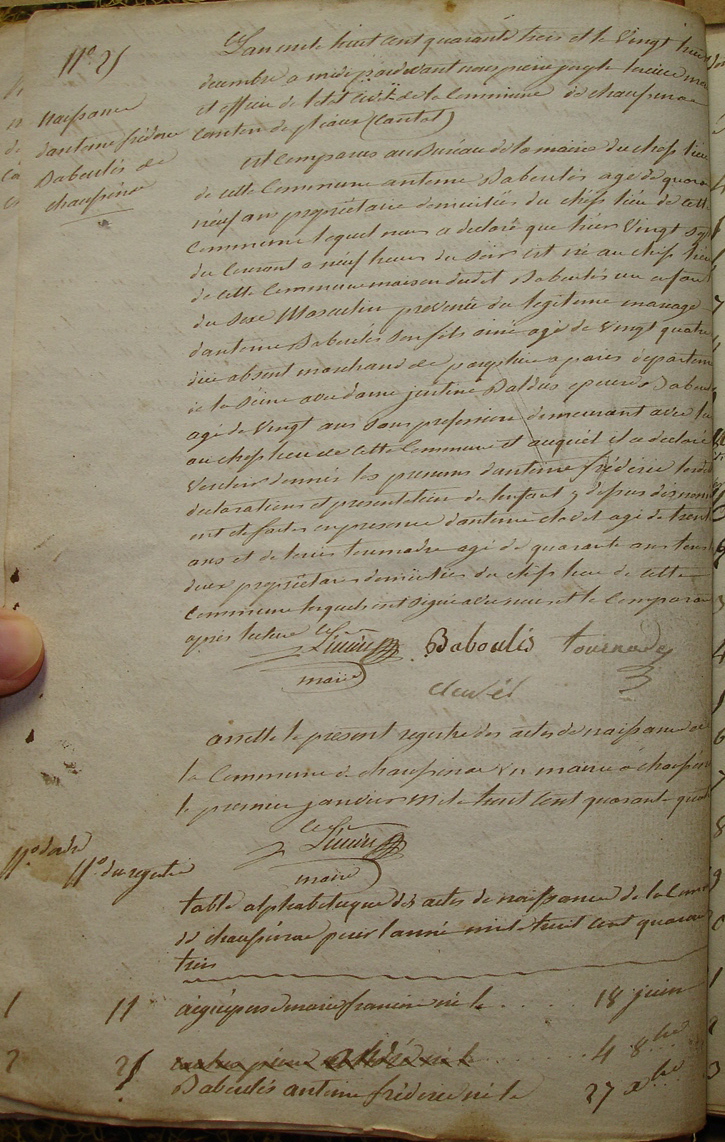 N.° 25
naissance
d'antoine fréderic
Baboulés de
chaussenac
L'an mil huit cent quarante trois et le vingt huit
decembre a midi pardevant nous pierre joseph maire
et officier de l'etat civil de la Commune de chaussenac
Canton de pleaux (Cantal)
est comparu au Bureau de la mairie du chef lieu
de cette Commune antoine Baboulés agé de quarante
neuf ans propriétaire domicilié du chef lieu de cette
Commune lequel nous a declaré que hier vingt sept
du Courant a neuf heures du soir est né au chef lieu
de cette Commune maison dudit Baboulés un enfant
du sexe Masculin provenu du legitime mariage
d'antoine Baboulés son fils ainé agé de vingt quatre
absent marchand de parapluie a paris departement
de la Seine avec dame justine Baldus epouse Baboulés
agé de vingt ans sans profession demeurant avec lui
au chef lieu de cette Commune et auquel il a declaré
vouloir donner les prenoms d'antoine fréderic lesdites
declarations et presentation de l'enfant y dessus denommé
ont et faites en presence d'antoine clavel agé de trente
ans et de tournadre agé de quarante ans tous
deux propriétaires domiciliés du chef lieu de cette
Commune lesquels ont signé avec nous et le Comparant
après lecture
Baboulés
maire
clavel
arretté le present registre des actes de naissance de
la Commune de chaussenac en mairie a chaussenac
le premier janvier mil huit cent quarante quatre
le
maire
N.° d'ordre N.° du registre
table alphabetique des actes de naissance de la Commune
de chaussenac pour l'année mil huit cent quarante
trois
1 11 marie françoise né le 18 juin
4 8bre
2 25 Baboulés antoine fréderic né le 27 xbre